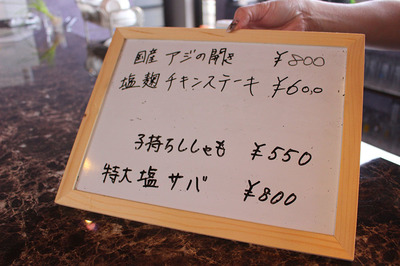 国産 アジの開き ¥800
塩麹チキンステーキ ¥600
子持ちししゃも ¥550
特大塩サバ ¥800